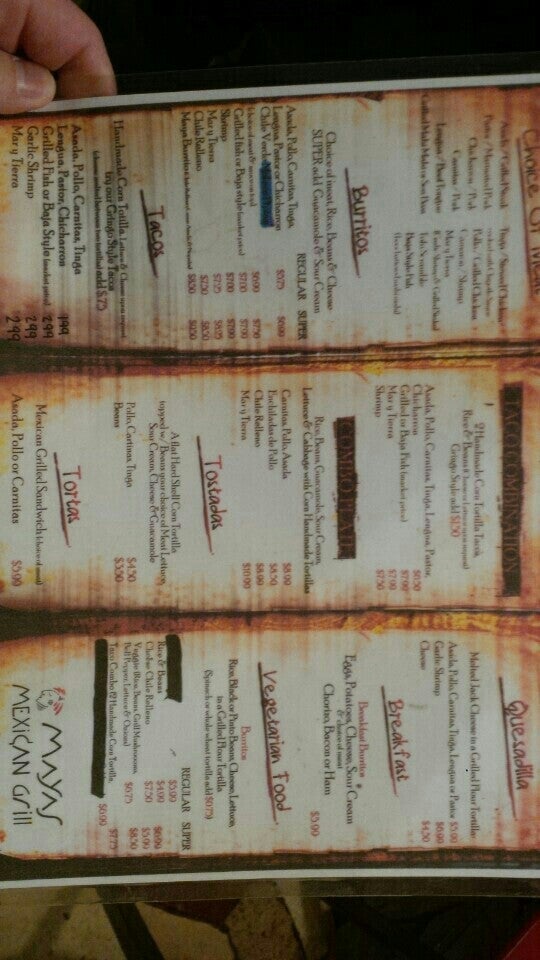 Choice Of Meat
Asada / Grilled Steak
Tinga / Stewed Chicken
Pastor / Marinated Pork
Chicharron / Pork
Pollo / Grilled Chicken
Carnitas / Pork
Camaron / Shrimp
Mar y Tierra
Lengua / Beef Tongue
Baja Style Fish
Burritos
Choice of meat, Rice, Beans & Cheese
SUPER add Guacamole & Sour Cream
REGULAR SUPER
Asada, Pollo, Carnitas, Tinga,
Lengua, Pastor or Chicharron $5.75 $6.99
Chile Verde
Shrimp
Grilled fish or Baja style (market price)
Mar y Tierra
Chile Relleno
Tacos
Handmade Corn Tortilla, Lettuce & Cheese upon request
try our Gringo Style Tacos
add $.75
Asada, Pollo, Carnitas, Tinga
Lengua, Pastor, Chicharron 1.99
Grilled Fish or Baja Style (market price) 2.99
Garlic Shrimp 2.99
Mar y Tierra 2.99
TACO COMBINATION
2 Handmade Corn Tortilla Tacos,
Rice & Beans (Cheese or Lettuce upon request)
Gringo Style add $1.50
Asada, Pollo, Carnitas, Tinga, Lengua, Pastor,
Chicharron $6.50
Grilled or Baja Fish (market price) $7.99
Mar y Tierra $7.99
Shrimp $7.50
COMBO PLATE
Rice, Beans, Guacamole, Sour Cream,
Lettuce & Cabbage with Corn Handmade Tortillas
Carnitas, Pollo, Asada $8.99
Enchiladas de Pollo $8.50
Chile Relleno $8.99
Mar y Tierra $10.99
Tostadas
A flat Hard Shell Corn Tortilla
topped w/ Beans your choice of Meat Lettuce,
Sour Cream, Cheese & Guacamole
Pollo, Carnitas, Tinga $4.50
Beans $3.50
Tortas
Mexican Grilled Sandwich (choice of meat)
Asada, Pollo or Carnitas $5.99
Quesadilla
Melted Jack Cheese in a Grilled Flour Tortilla
Asada, Pollo, Carnitas, Tinga, Lengua or Pastor $5.99
Garlic Shrimp $6.99
Cheese $4.50
Breakfast
Breakfast Burritos
Eggs, Potatoes, Cheese, Sour Cream
& choice of meat
Chorizo, Bacon or Ham $5.99
Vegetarian Food
Burritos
Rice, Black or Pinto Beans, Cheese, Lettuce,
in a Grilled Flour Tortilla
(Spinach or whole wheat tortilla add $0.75)
REGULAR SUPER
$5.99
Rice & Beans $4.99
Cheese Chile Relleno $7.50
Veggie (Rice, Beans, Grill Mushrooms,
Bell Pepper, Lettuce & Onions) $6.75
Taco Combo (2 Handmade Corn Tortilla,
$6.99
MAYAS
MEXICAN Grill